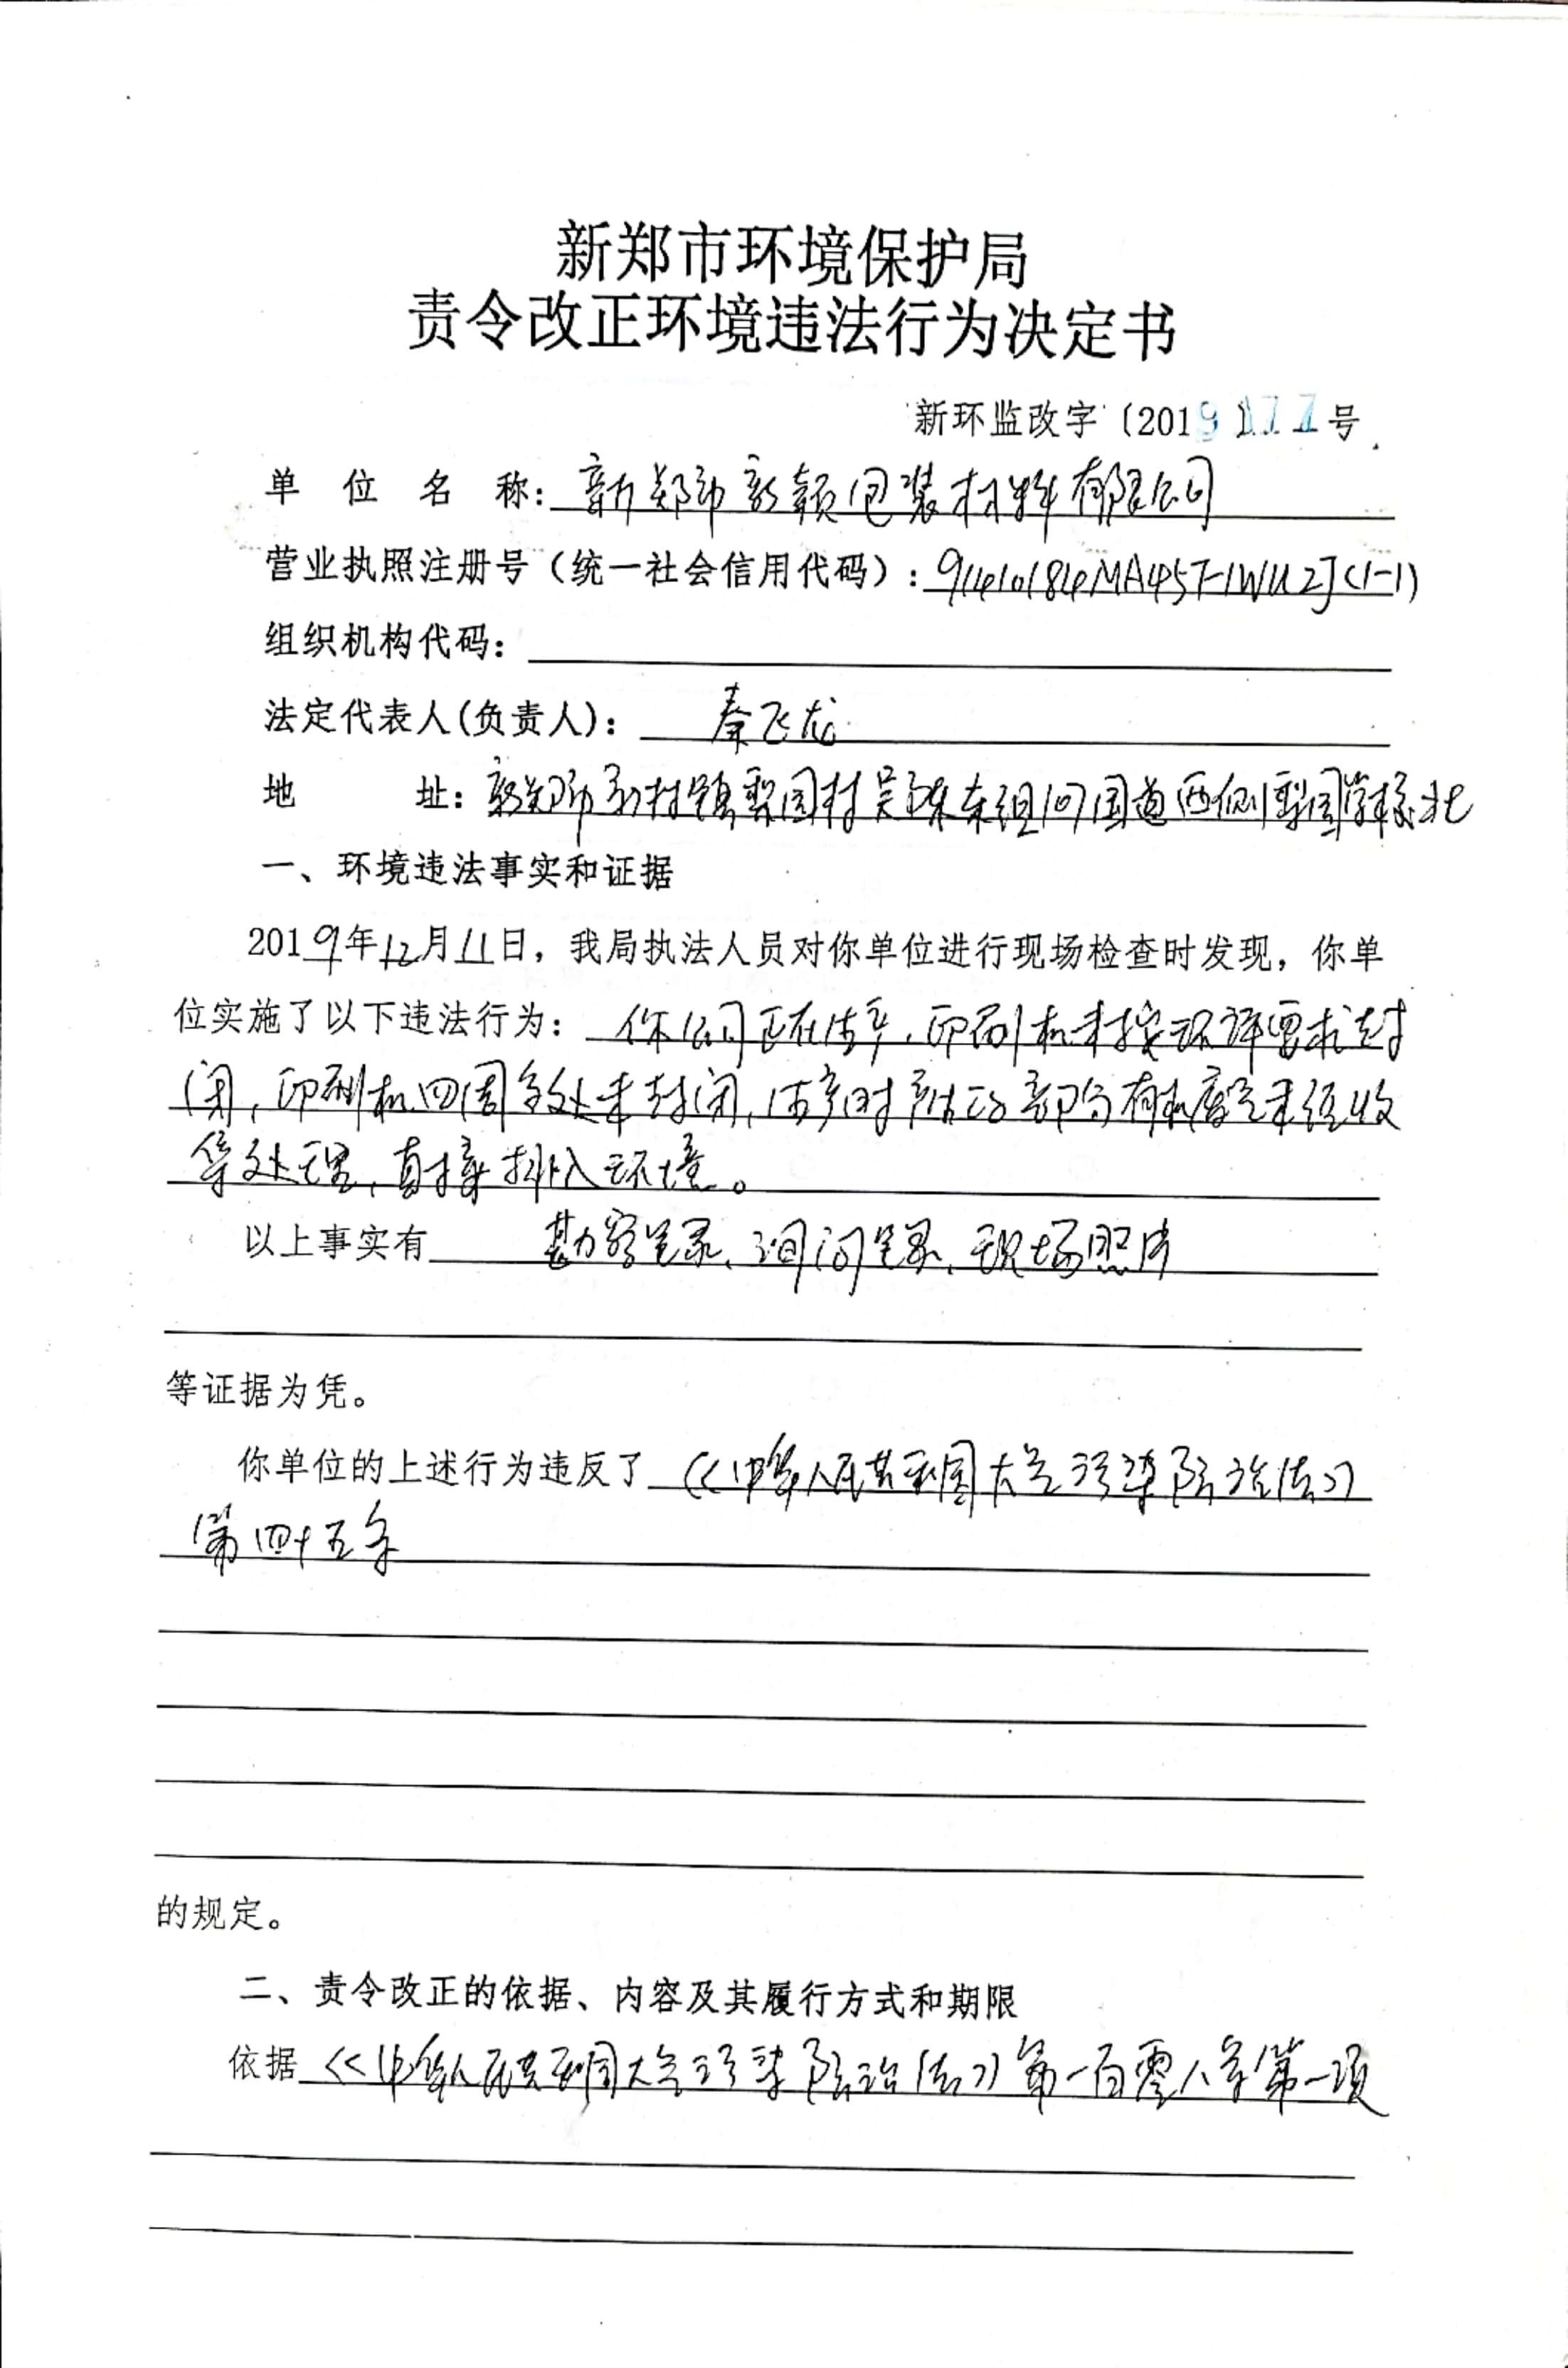 新郑市环境保护局
责令改正环境违法行为决定书
新环监改字〔2019〕177号
单位名称：新郑市新颖包装材料有限公司
营业执照注册号（统一社会信用代码）：91410184MA45T1WU2J(1-1)
组织机构代码：
法定代表人(负责人)：秦飞龙
地址：新郑市新村镇梨园村吴陈东组107国道西侧梨园学校北
一、环境违法事实和证据
2019年12月11日，我局执法人员对你单位进行现场检查时发现，你单
位实施了以下违法行为：你公司正在生产，印刷机未按环评要求封
闭，印刷机四周多处未封闭，生产时产生的部分有机废气未经收
集处理，直接排入环境。
以上事实有 勘察笔录、询问笔录、现场照片
等证据为凭。
你单位的上述行为违反了《中华人民共和国大气污染防治法》
第四十五条
的规定。
二、责令改正的依据、内容及其履行方式和期限
依据《中华人民共和国大气污染防治法》第一百零八条第一项